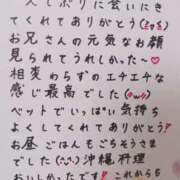 久しぶりに会いにき
てくれてありがとう(ミュミ)
お兄さんの元気なお顔
見られてうれしかった～♡
相変わらずのエチエチな
感じ最高でした(*ω*)
ベットでいっぱい気持ち
よくしてくれてありがとう
お昼ごはんもごちそうさま
でした(^^)沖縄料理
おいしかったです!これからも